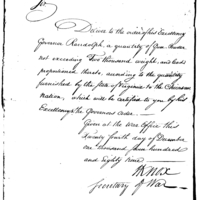 Sir,
Deliver to the order of his Excellency
Governor Randolph, a quantity of Gun Powder
not exceeding Two thousand weight, and Lead
proportioned thereto, according to the quantity
furnished by the State of Virginia to the Chickasaw
Nation, which will be certified to you by his
Excellency the Governors order.
Given at the War Office this
twenty fourth day of December
one thousand seven hundred
and eighty nine
H Knox
Secretary of War